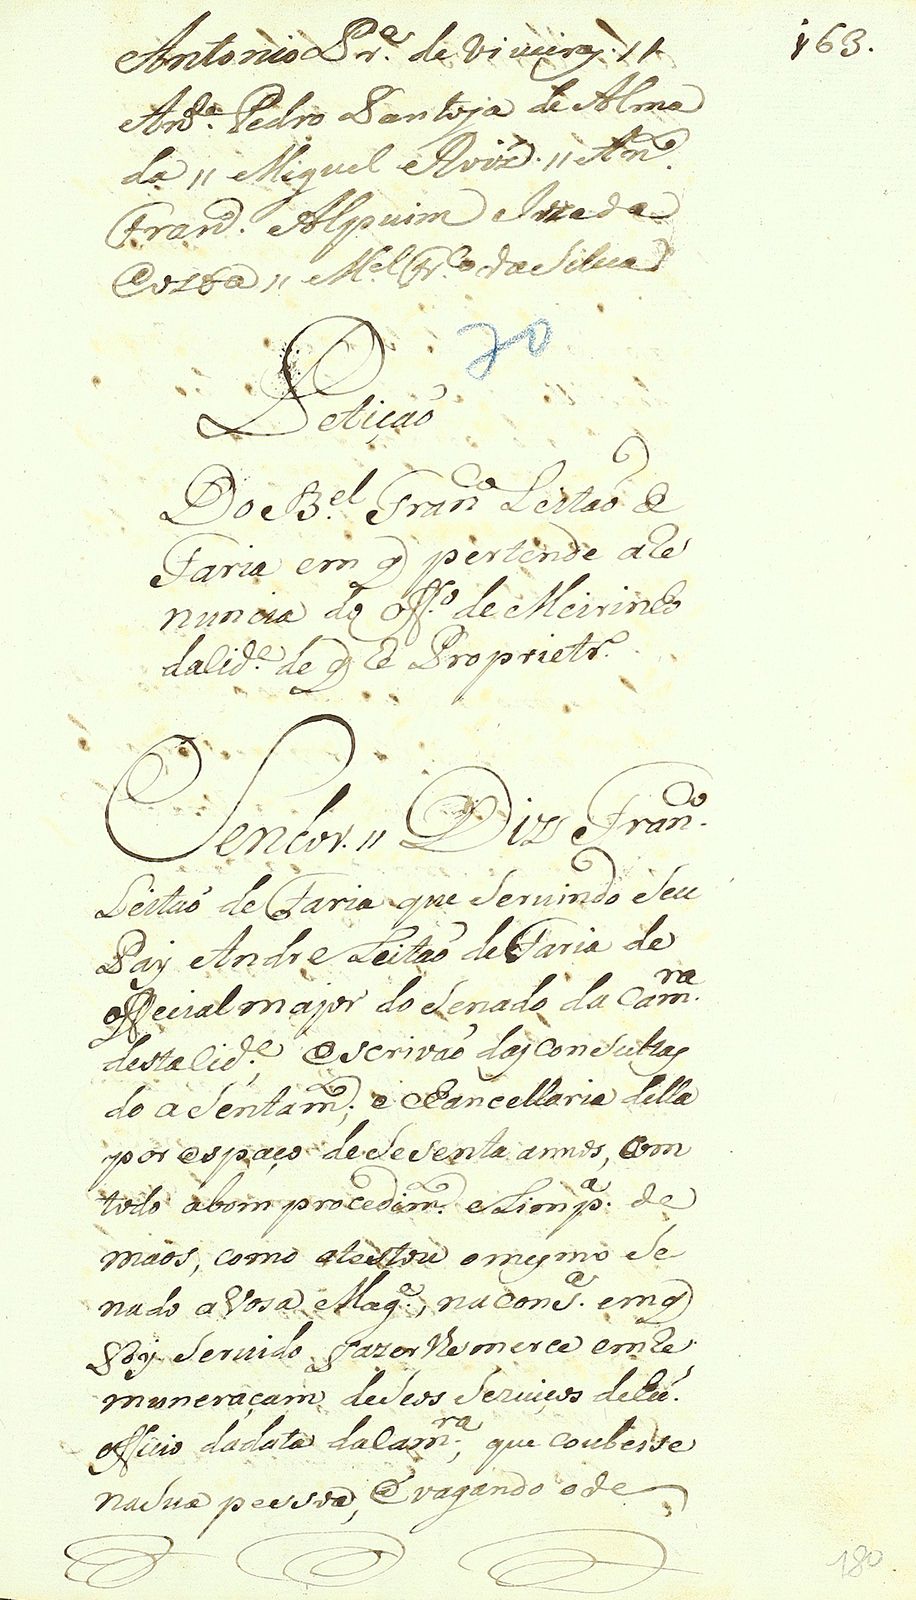 163.
Antonio Prª. de Viueiros //
Andª. Pedro Pantoja de Alma
da // Miguel Roiz. // Antº.
Franº. Alpuim e Ine da
Costa // Mel Frco da Silua
20
Petiçaõ
Do B.el Franco Leitaõ de
Faria em q pertende a Re
nuncia do Offº. de Meirinho
da Cidᵉ. de q he Proprietrº.
Senhor. // Diz Franco.
Leitaõ de Faria que seruindo seu
Pay Andre Leitaõ de Faria de
official major do senado da Camra.
desta Cidᵉ, escriuaõ das consultas
do asentamº; e chancellaria della
por espaço de sesenta annos, com
todo abom procedimº. e Limpª. de
maos, como atestou o mesmo Se
nado a Vosa Magᵉ, na consª. em q
Foy seruido fazerlhe merce em Re
muneraçam de seos seruiços de hũ.
officio da data da Camra, que coubesse
na sua pessoa, e vagando o de
180